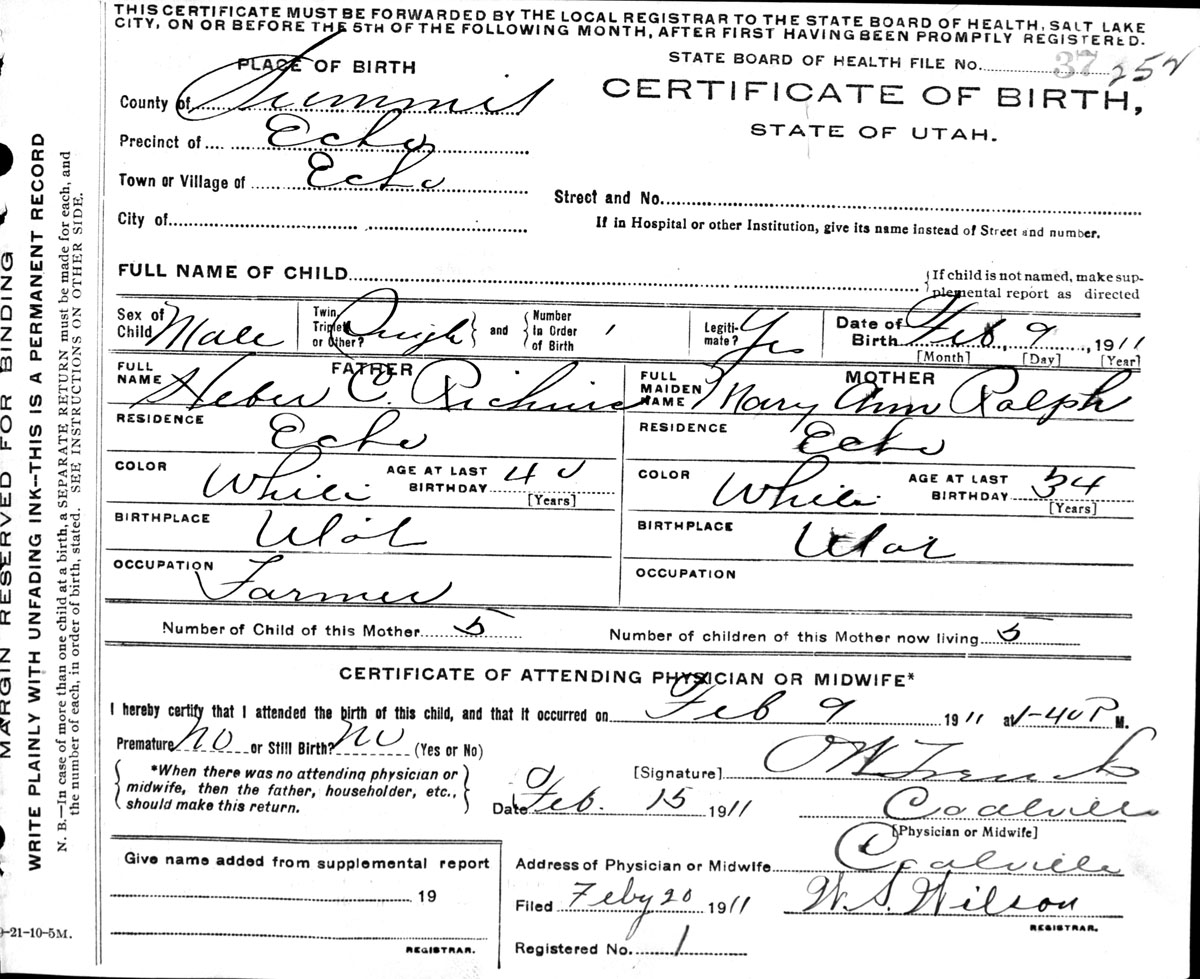 THIS CERTIFICATE MUST BE FORWARDED BY THE LOCAL REGISTRAR TO THE STATE BOARD OF HEALTH, SALT LAKE
CITY, ON OR BEFORE THE 5TH OF THE FOLLOWING MONTH, AFTER FIRST HAVING BEEN PROMPTLY REGISTERED.
STATE BOARD OF HEALTH FILE NO. 37 252
CERTIFICATE OF BIRTH,
STATE OF UTAH.
PLACE OF BIRTH
County of Summit
Precinct of Echo
Town or Village of Echo
City of
Street and No.
If in Hospital or other Institution, give its name instead of Street and number.
FULL NAME OF CHILD
{If child is not named, make sup-
plemental report as directed
Sex of Child Male
Twin, Triplet or Other? and {Number In Order of Birth 1
Legiti-mate? Yes
Date of Birth Feb, 9, 1911
[Month] [Day] [Year]
FATHER
FULL NAME Heber C. Richins
MOTHER
FULL MAIDEN NAME Mary Ann Ralph
RESIDENCE Echo
RESIDENCE Echo
COLOR White AGE AT LAST BIRTHDAY 40 [Years]
COLOR White AGE AT LAST BIRTHDAY 34 [Years]
BIRTHPLACE Utah
BIRTHPLACE Utah
OCCUPATION Farmer
OCCUPATION
Number of Child of this Mother 5
Number of children of this Mother now living 5
CERTIFICATE OF ATTENDING PHYSICIAN OR MIDWIFE*
I hereby certify that I attended the birth of this child, and that it occurred on Feb 9 1911 at 1-40 P M.
Premature No or Still Birth? No (Yes or No)
{*When there was no attending physician or
midwife, then the father, householder, etc.,
should make this return.}
[Signature]
Date Feb. 15 1911 Coalville
[Physician or Midwife]
Address of Physician or Midwife Coalville
Filed Feby 20 1911 W. S. Wilson
REGISTRAR.
Registered No. 1
Give name added from supplemental report
19
REGISTRAR.
MARGIN RESERVED FOR BINDING
WRITE PLAINLY WITH UNFADING INK--THIS IS A PERMANENT RECORD
N. B.—In case of more than one child at a birth, a SEPARATE RETURN must be made for each, and
the number of each, in order of birth, stated. SEE INSTRUCTIONS ON OTHER SIDE.
9-21-10-5M.